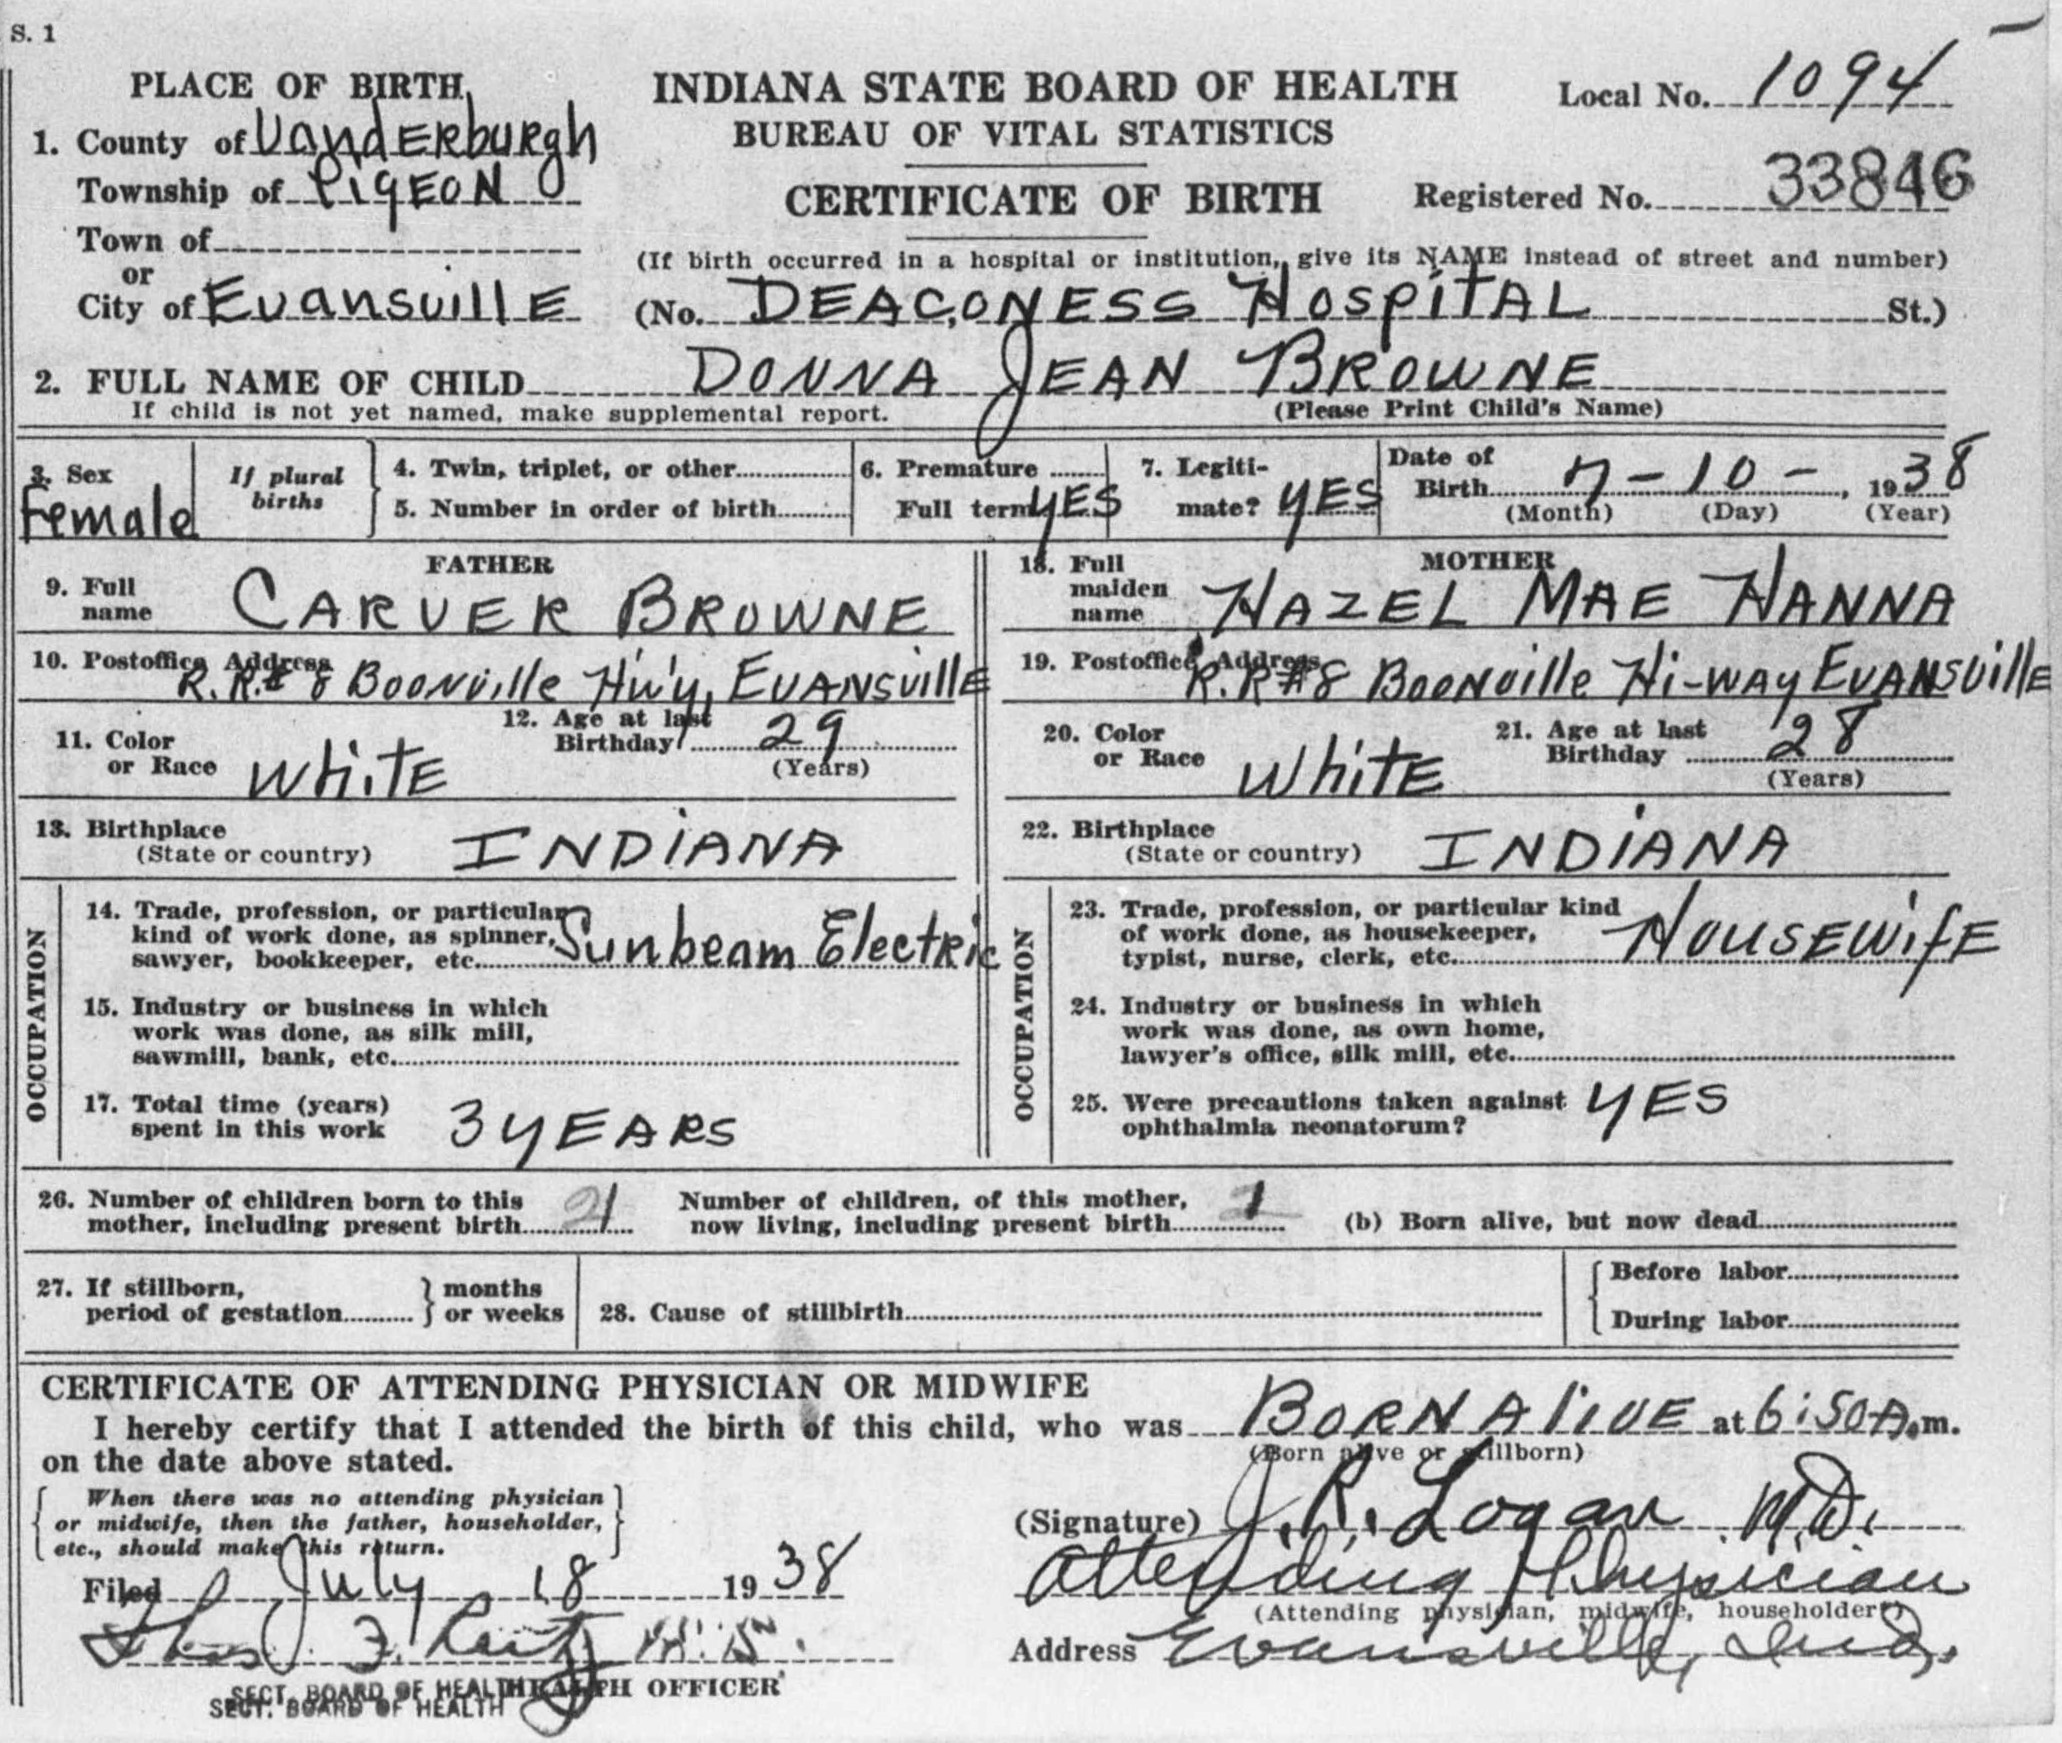 S. 1
PLACE OF BIRTH
1. County of Vanderburgh
Township of Pigeon
Town of
or
City of Evansville
INDIANA STATE BOARD OF HEALTH
BUREAU OF VITAL STATISTICS
CERTIFICATE OF BIRTH
Local No. 1094
Registered No. 33846
(If birth occurred in a hospital or institution, give its NAME instead of street and number)
(No. DEACONESS HOSPITAL St.)
2. FULL NAME OF CHILD DONNA JEAN BROWNE
If child is not yet named, make supplemental report. (Please Print Child's Name)
3. Sex
Female
If plural
births
4. Twin, triplet, or other
5. Number in order of birth
6. Premature
Full term YES
7. Legiti-
mate? YES
Date of
Birth 7-10-, 1938
(Month) (Day) (Year)
FATHER
9. Full
name CARVER BROWNE
10. Postoffice Address
R. R. # 8 Boonville Hw'y, Evansville
11. Color
or Race White
12. Age at last
Birthday 29
(Years)
13. Birthplace
(State or country) INDIANA
OCCUPATION
14. Trade, profession, or particular
kind of work done, as spinner,
sawyer, bookkeeper, etc. Sunbeam Electric
15. Industry or business in which
work was done, as silk mill,
sawmill, bank, etc.
17. Total time (years)
spent in this work 3 YEARS
MOTHER
18. Full
maiden
name HAZEL MAE HANNA
19. Postoffice Address
R. R #8 Boonville Hi-way Evansville
20. Color
or Race White
21. Age at last
Birthday 28
(Years)
22. Birthplace
(State or country) INDIANA
OCCUPATION
23. Trade, profession, or particular kind
of work done, as housekeeper,
typist, nurse, clerk, etc. HOUSEWIFE
24. Industry or business in which
work was done, as own home,
lawyer's office, silk mill, etc.
25. Were precautions taken against
ophthalmia neonatorum? YES
26. Number of children born to this
mother, including present birth
Number of children, of this mother,
now living, including present birth
(b) Born alive, but now dead
27. If stillborn,
period of gestation
months
or weeks
28. Cause of stillbirth
Before labor
During labor
CERTIFICATE OF ATTENDING PHYSICIAN OR MIDWIFE
I hereby certify that I attended the birth of this child, who was BORN ALIVE at 6:50 A.m.
(Born alive or stillborn)
on the date above stated.
When there was no attending physician
or midwife, then the father, householder,
etc., should make this return.
Filed July 18 1938
HEALTH OFFICER
SECT. BOARD OF HEALTH
SECT. BOARD OF HEALTH
(Signature) J. R. Logan M.D.
Attending Physician
(Attending physician, midwife, householder*)
Address Evansville, Ind.